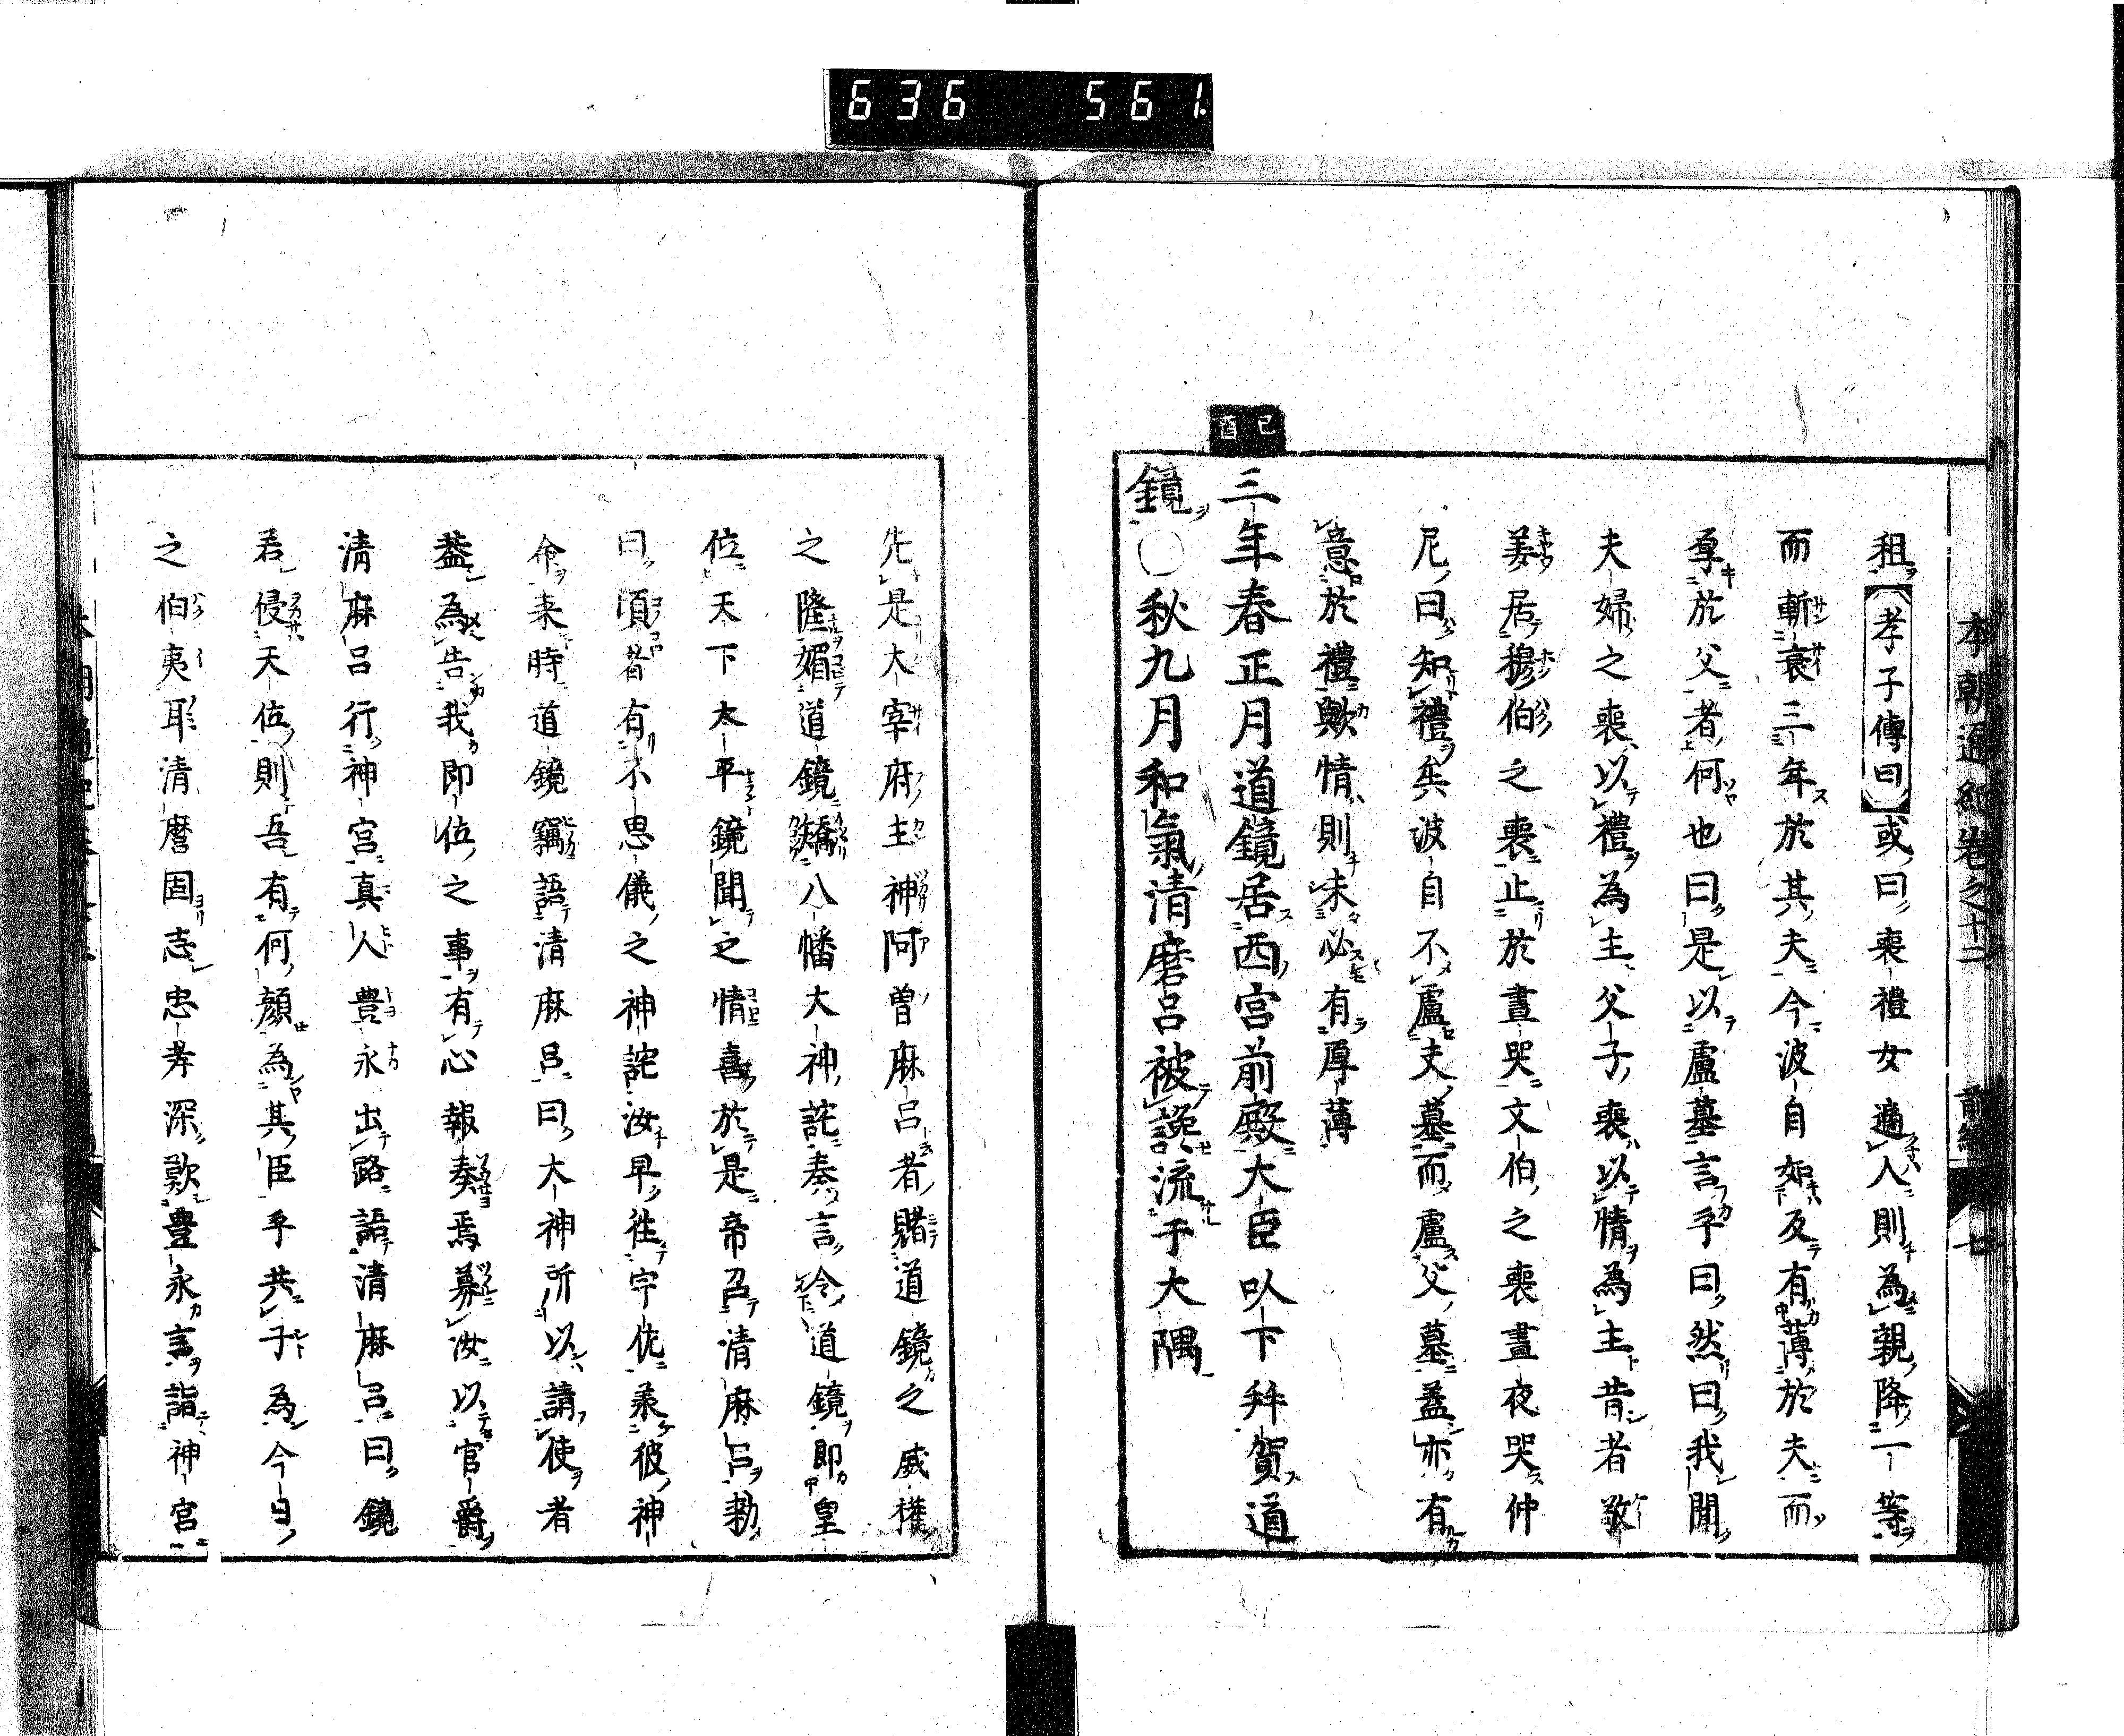 636 561
本朝通紀卷之十二 前編 七
租【孝子傳曰】或曰喪禮女適人則為親降一等
而斬衰三年於其夫今波自如反有薄於夫而
厚於父者何也曰是以盧墓言乎曰然曰我聞
夫婦之喪以禮為主父子喪以情為主昔者敬
姜居穆伯之喪止於晝哭文伯之喪晝夜哭仲
尼曰知禮矣波自不盧夫墓而盧父墓蓋亦有
意於禮歟情則未必有厚薄
己酉
三年春正月道鏡居西宮前殿大臣以下拜賀道
鏡○秋九月和氣清磨呂被讒流于大隅
先是大宰府主神阿曽麻呂者賭道鏡之威權
之隆媚道鏡矯八幡大神託奏言令道鏡即皇
位天下太平鏡聞之情喜於是帝召清麻呂勅
曰頃者有不思儀之神託汝早往宇佐承彼神
命来時道鏡竊語清麻呂曰大神所以請使者
葢為告我即位之事有心報奏焉募汝以官爵
清麻呂行神宮真人豊永出路語清麻呂曰鏡
若侵天位則吾有何顔為其臣乎共子為今日
之伯夷耳清麿固志忠孝深歎豊永言詣神宮